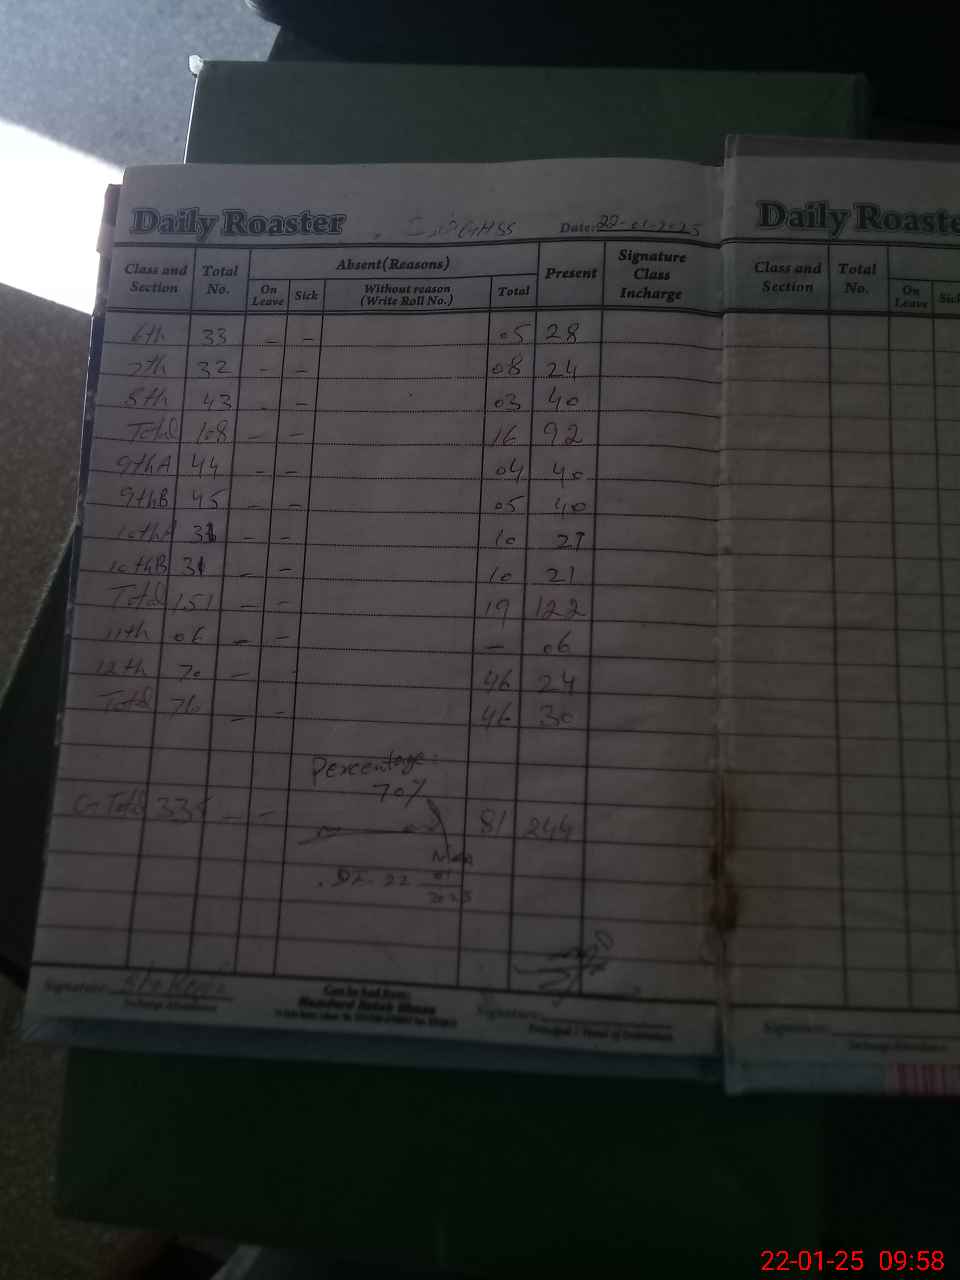 Daily Roaster GHSS Date: 22-01-2025
Class and Section Total No. Absent(Reasons) On Leave Sick Without reason (Write Roll No.) Total Present Signature Class Incharge
6th 33 - - 05 28
7th 32 - - 08 24
8th 43 - - 03 40
Total 108 - - 16 92
9thA 44 - - 04 40
9thB 45 - - 05 40
10thA 31 - - 10 21
10thB 31 - - 10 21
Total 151 - - 19 122
11th 06 - - - 06
12th 70 - 46 24
Total 76 - - 46 30
Percentage:
70%
G.Total 335 - - 81 244
22 01 2025
Signature:
Signature:
Daily Roaste
Class and Section Total No. On Leave Sick
Signature:
22-01-25 09:58